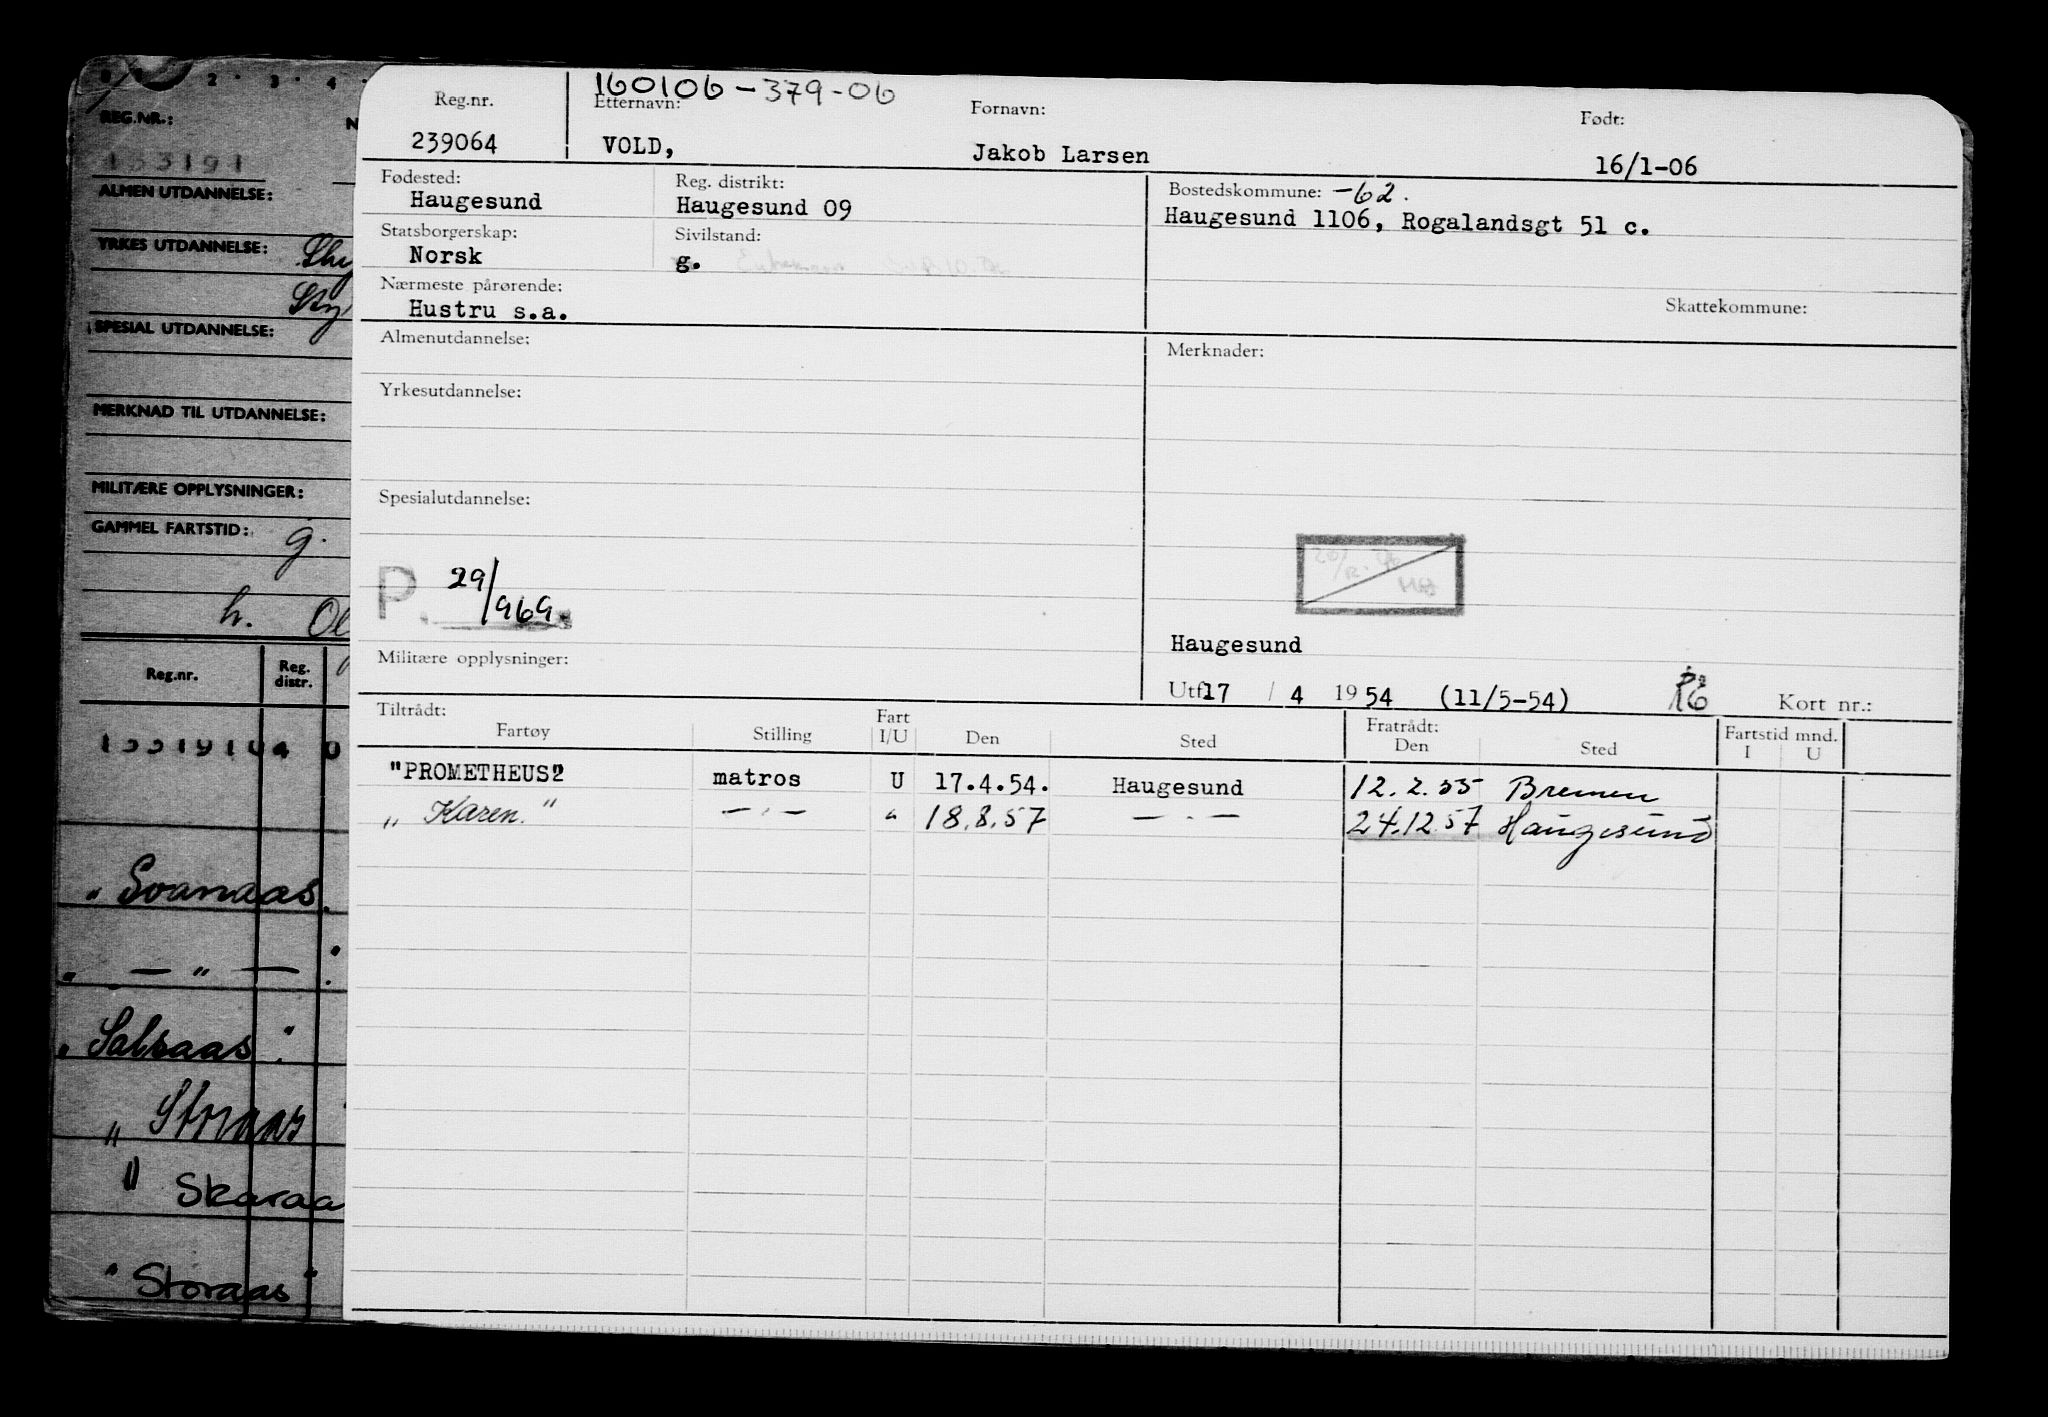 160106-379-06
Reg.nr. Etternavn: Fornavn: Født:
239064 VOLD, Jakob Larsen 16/1-06
Fødested: Reg. distrikt: Bostedskommune: -62.
Haugesund Haugesund 09 Haugesund 1106, Rogalandsgt 51 c.
Statsborgerskap: Sivilstand:
Norsk g.
Nærmeste pårørende: Skattekommune:
Hustru s.a.
Almenutdannelse: Merknader:
Yrkesutdannelse:
Spesialutdannelse:
P. 29/969.
Haugesund
Militære opplysninger:
Utf 17 / 4 19 54 (11/5-54) Kort nr.:
Tiltrådt: Fart Fratrådt: Fartstid mnd.
Fartøy Stilling I/U Den Sted Den Sted I U
"PROMETHEUS2 matros U 17.4.54. Haugesund 12.2.55 Bremen
„ Karen." — . — " 18.8.57 — . — 24.12.57 Haugesund
2 3 4
REG.NR.: N
133191
ALMEN UTDANNELSE:
YRKES UTDANNELSE:
SPESIAL UTDANNELSE:
MERKNAD TIL UTDANNELSE:
MILITÆRE OPPLYSNINGER:
GAMMEL FARTSTID: g.
h.
Reg.nr. Reg. distr.
133191 04 0
" Svanaas.
" — " — "
" Salsaas "
„ Storaas
" Skaraa
" Storaas "